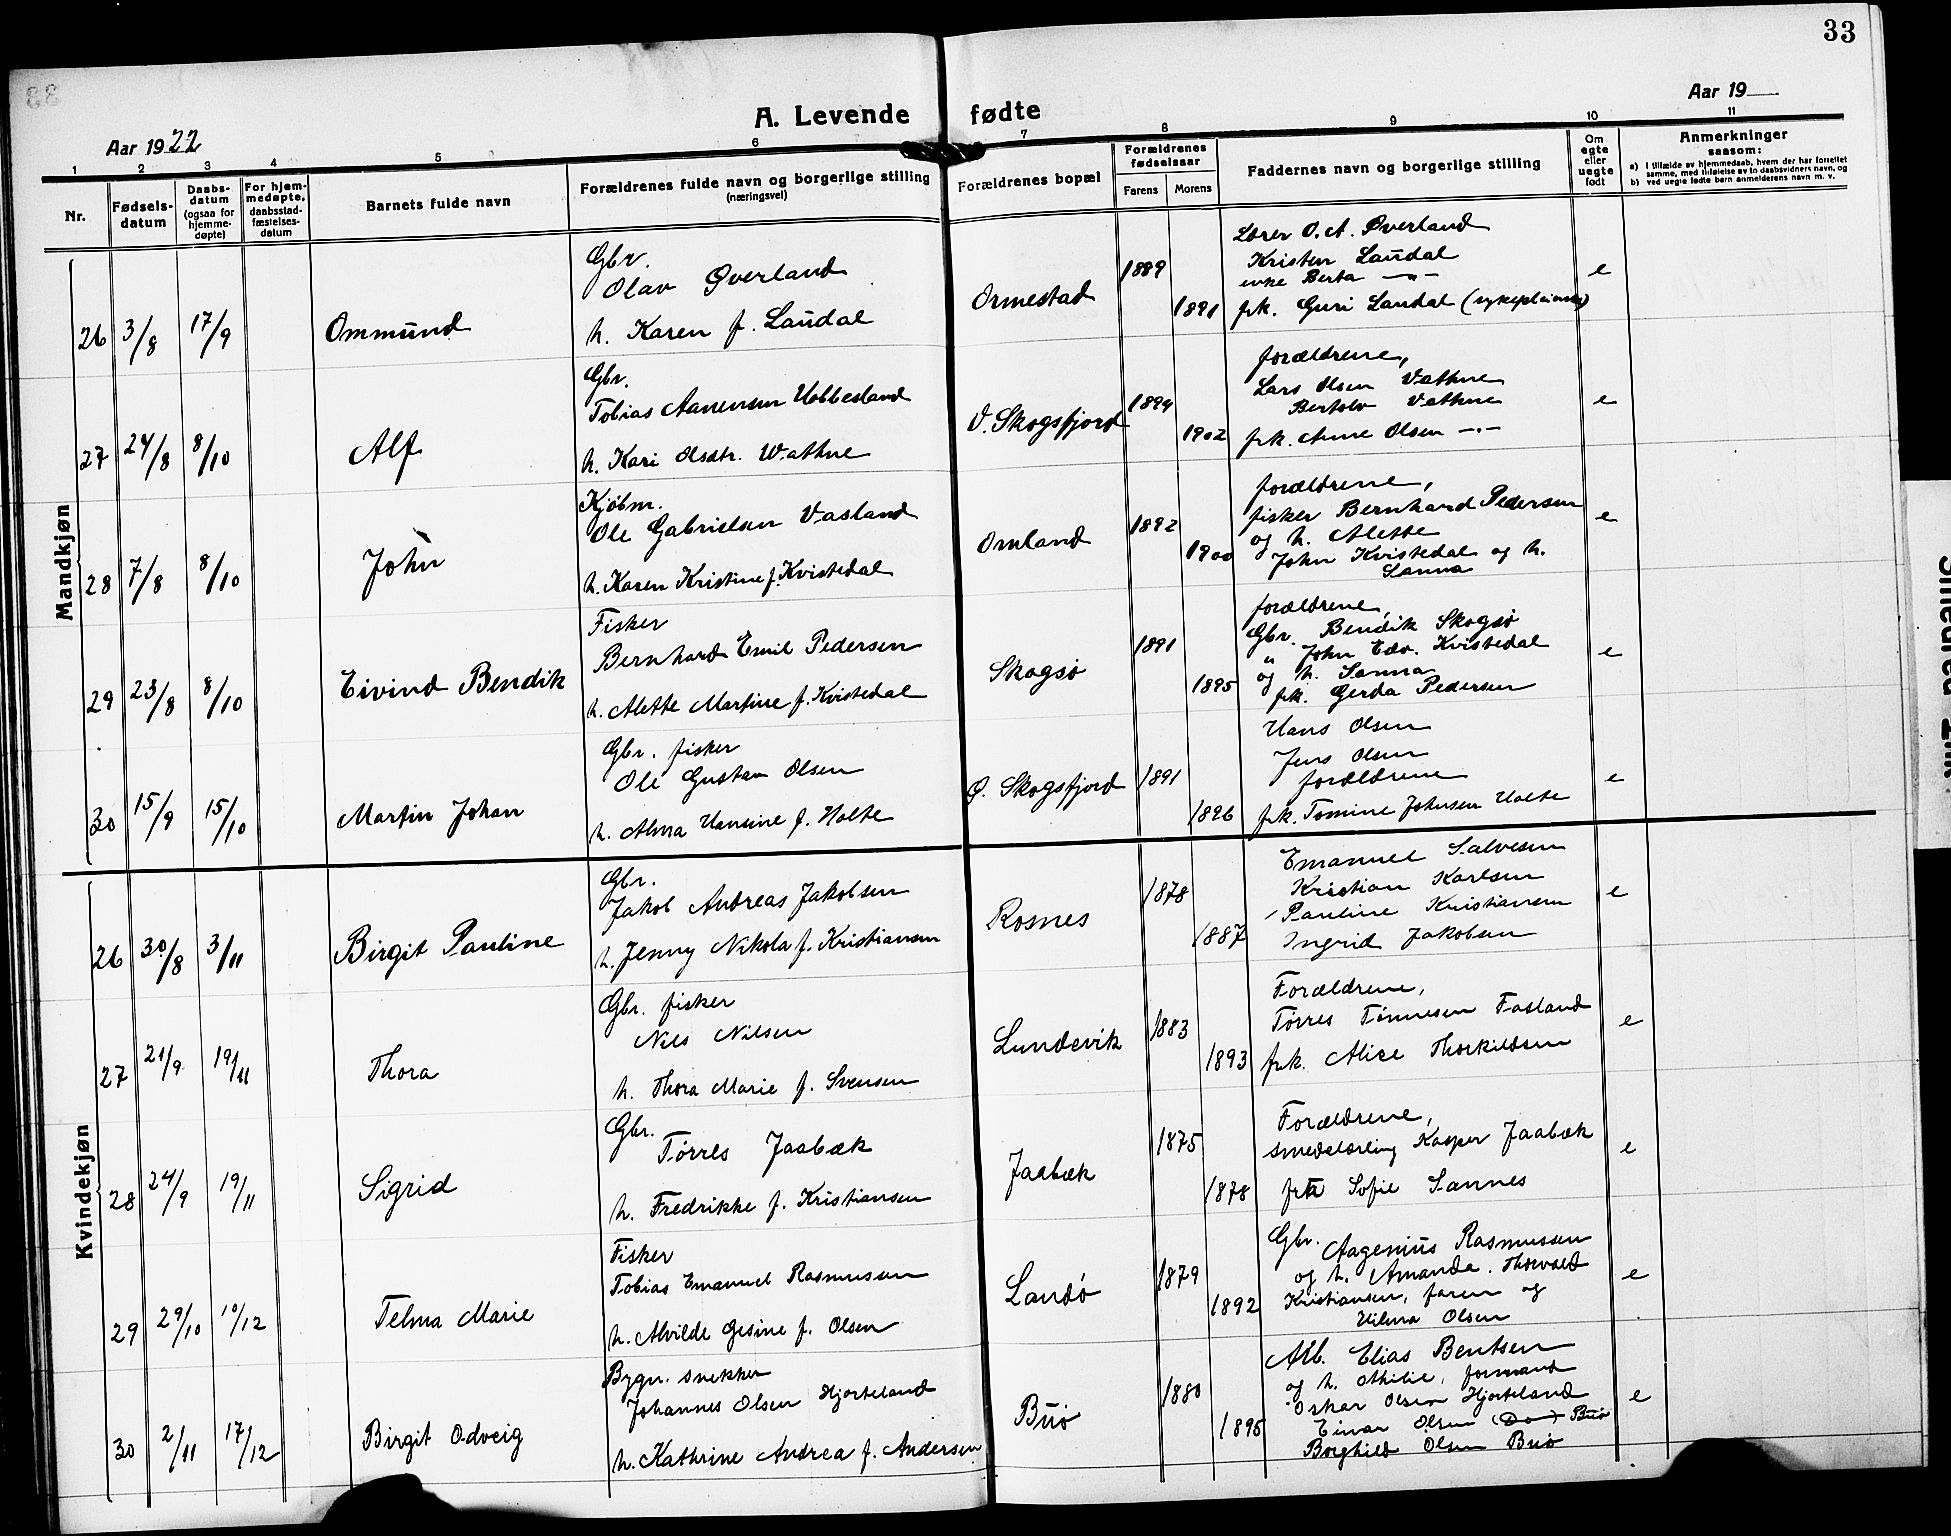 33
A. Levende fødte
Aar 1922
Aar 19
1 2 3 4 5 6 7 8 9 10 11
Nr.
Fødsels-datum
Daabs-datum (ogsaa for hjemme-døpte)
For hjem-medøpte, daabsstad-fæstelses-datum
Barnets fulde navn
Forældrenes fulde navn og borgerlige stilling (næringsvei)
Forældrenes bopæl
Forældrenes fødselsaar
Farens Morens
Faddernes navn og borgerlige stilling
Om egte eller uegte født
Anmerkninger saasom:
a) i tilfælde av hjemmedaab, hvem der har forrettet samme, med tilføielse av to daabsvidners navn, og
b) ved uegte fødte børn anmelderens navn m. v.
Mandkjøn
26 3/8 17/9 Ommund
Gbr.
Olav Øverland
h. Karen f. Laudal
Ormestad 1889 1891
Lærer O. A. Øverland
Kristen Laudal
enke Berta -"-
frk. Guri Laudal
e
27 24/8 8/10 Alf
Gbr.
Tobias Aanensen Ubbesland
h. Kari Olsdtr. Wathne
V. Skogsfjord 1894 1902
forældrene,
Lars Olsen Vathne
Bertolv Vathne
frk. Anne Olsen -"-
e
28 7/8 8/10 John
Kjøbm.
Ole Gabrielsen Vasland
h. Karen Kristine f. Kvistedal
Omland 1892 1900
forældrene,
fisker Bernhard Pedersen
og h. Alette
John Kvistedal og h.
Sanna
e
29 23/8 8/10 Eivind Bendik
Fisker
Bernhard Emil Pedersen
h. Alette Martine f. Kvistedal
Skogsø 1891 1895
forældrene,
Gbr. Bendik Skogsø
" John Edv. Kvistedal
og h. Sanna
frk. Gerda Pedersen
e
30 15/9 15/10 Martin Johan
Gbr. fisker
Ole Gustav Olsen
h. Alma Hansine f. Holte
Ø. Skogsfjord 1891 1896
Hans Olsen
Jens Olsen
forældrene
frk. Tomine Johnsen Holte
e
Kvindekjøn
26 30/8 3/11 Birgit Pauline
Gbr.
Jakob Andreas Jakobsen
h. Jenny Nikola f. Kristiansen
Rosnes 1878 1887
Emanuel Salvesen
Kristian Karlsen
Pauline Kristiansen
Ingrid Jakobsen
e
27 21/9 19/11 Thora
Gbr. fisker
Nils Nilsen
h. Thora Marie f. Svensen
Lundevik 1883 1893
Forældrene,
Tørres Tønnesen Fasland
frk. Alice Thorkildsen
e
28 24/9 19/11 Sigrid
Gbr.
Tørres Jaabæk
h. Fredrikke f. Kristiansen
Jaabæk 1875 1878
Forældrene,
smedelærling Kasper Jaabæk
frk Sofie Sannes
e
29 29/10 10/12 Telma Marie
Fisker
Tobias Emanuel Rasmussen
h. Alvilde Gesine f. Olsen
Landø 1879 1892
Gbr. Aagenius Rasmussen
og h. Amanda. Thorvald
Kristiansen, faren og
Vilma Olsen
e
30 2/11 17/12 Birgit Odveig
Bygn. snekker
Johannes Olsen Hjorteland
h. Kathrine Andrea f. Andersen
Buø 1880 1895
Arb. Elias Bentsen
og h. Othilie, formand
Oskar Olsen Hjorteland
Einar Olsen (Do) Buø
Borghild Olsen Buø
e